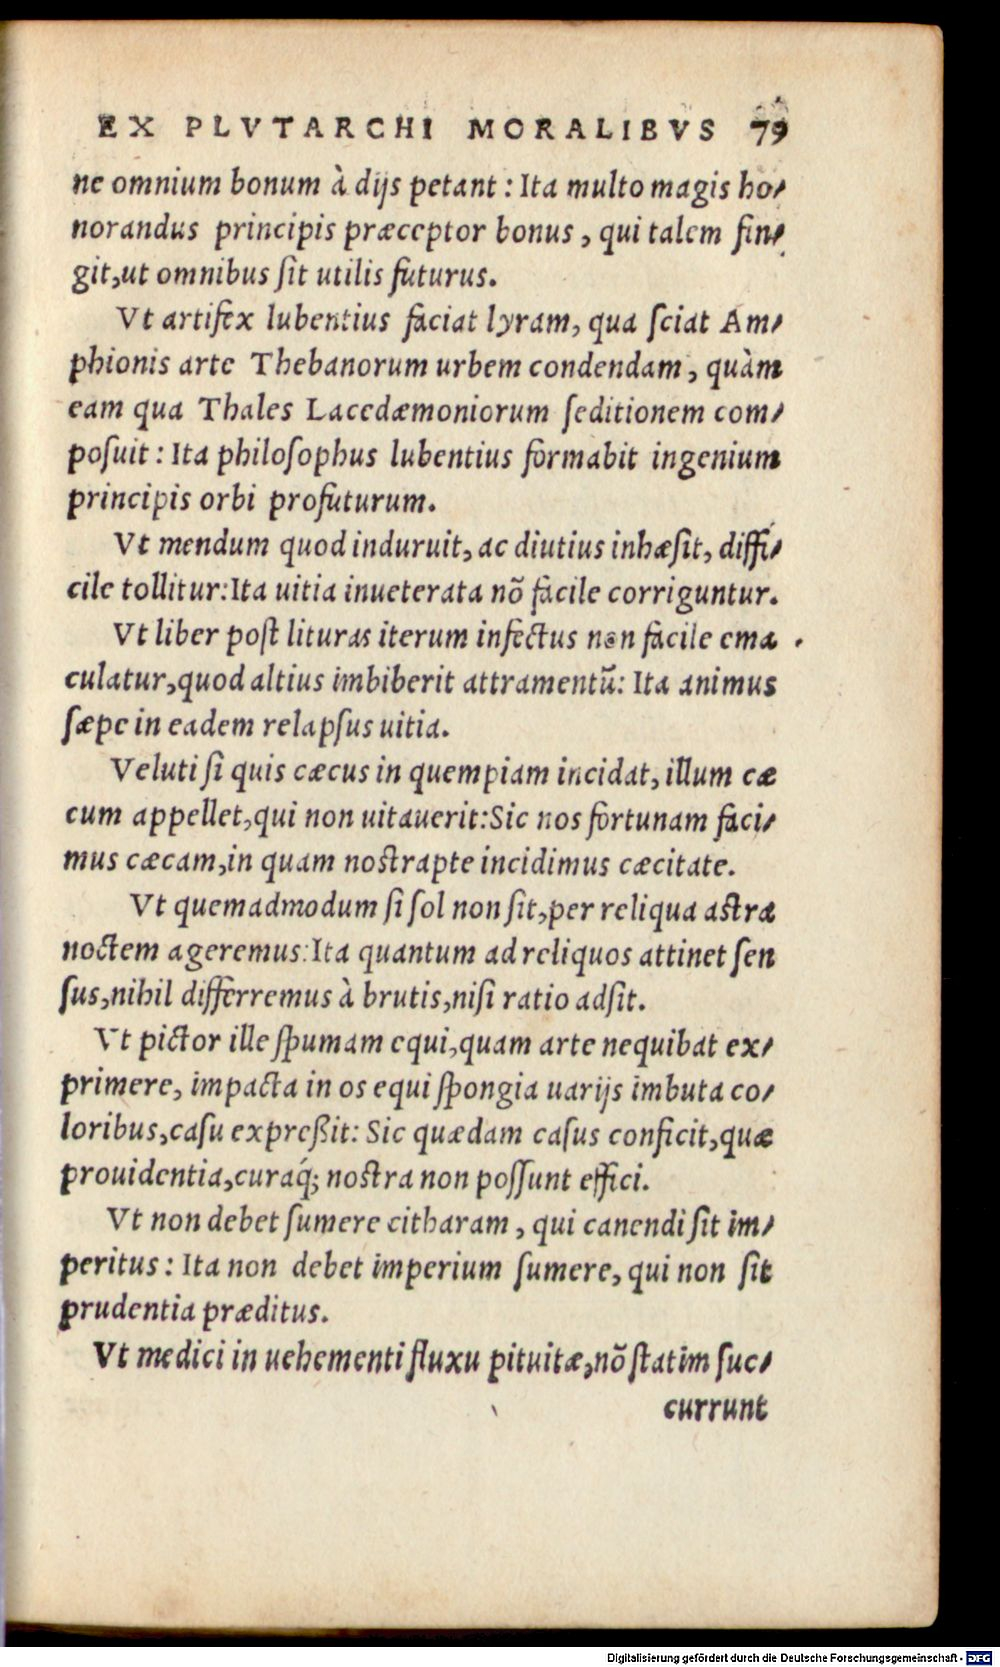 EX PLVTARCHI MORALIBVS 79
ne omnium bonum à dijs petant : Ita multo magis ho-
norandus principis præceptor bonus , qui talem fin-
git,ut omnibus ſit utilis futurus.
Vt artifex lubentius faciat lyram, qua ſciat Am-
phionis arte Thebanorum urbem condendam , quàm
eam qua Thales Lacedæmoniorum ſeditionem com-
poſuit : Ita philoſophus lubentius formabit ingenium
principis orbi profuturum.
Vt mendum quod induruit, ac diutius inhæſit, diffi-
cile tollitur:Ita uitia inueterata nõ facile corriguntur.
Vt liber poſt lituras iterum infectus non facile ema
culatur,quod altius imbiberit attramentũ: Ita animus
ſæpe in eadem relapſus uitia.
Veluti ſi quis cæcus in quempiam incidat, illum cæ
cum appellet,qui non uitauerit:Sic nos fortunam faci-
mus cæcam,in quam noſtrapte incidimus cæcitate.
Vt quemadmodum ſi ſol non ſit,per reliqua aſtra
noctem ageremus:Ita quantum ad reliquos attinet ſen
ſus,nihil differremus à brutis,niſi ratio adſit.
Vt pictor ille ſpumam equi,quam arte nequibat ex-
primere, impacta in os equi ſpongia uarijs imbuta co-
loribus,caſu expreßit: Sic quædam caſus conficit,quæ
prouidentia,curaq́; noſtra non poſſunt effici.
Vt non debet ſumere citharam , qui canendi ſit im-
peritus : Ita non debet imperium ſumere, qui non ſit
prudentia præditus.
Vt medici in uehementi fluxu pituitæ,nõ ſtatim ſuc-
currunt
Digitalisierung gefördert durch die Deutsche Forschungsgemeinschaft - DFG